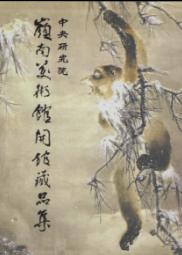 中央研究院
嶺南美術館開館藏品集